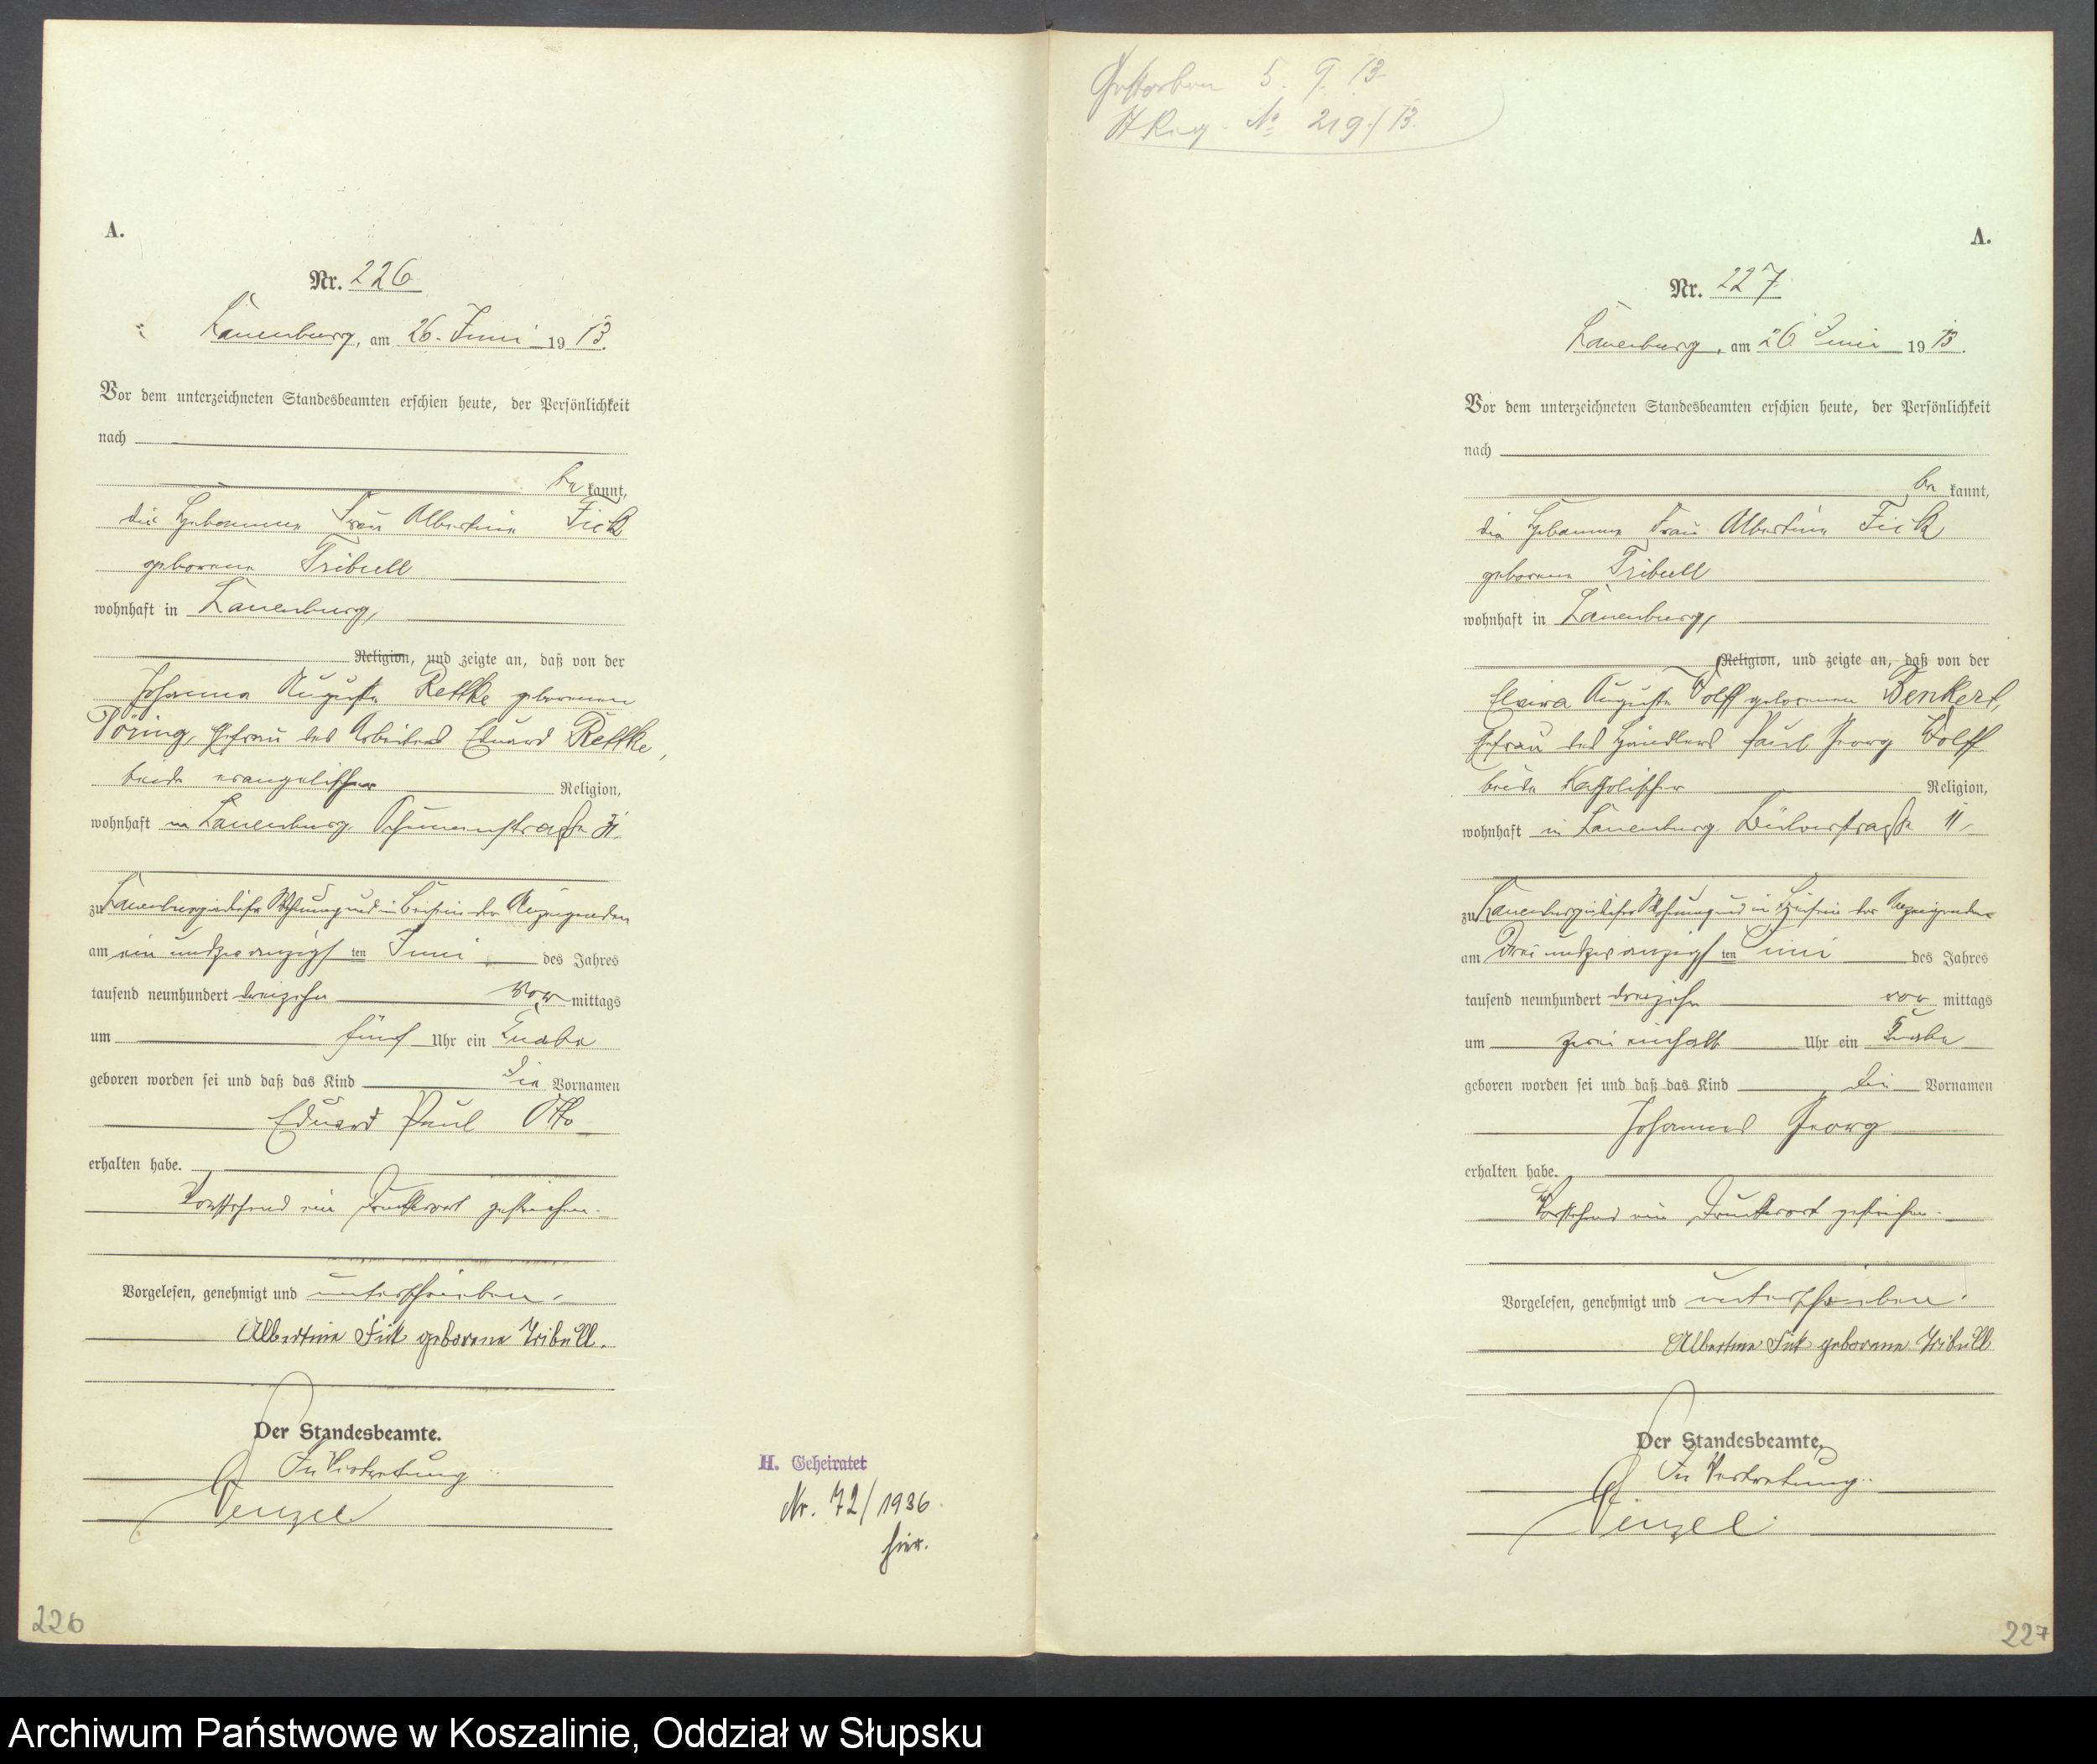 A.
Nr. 226
Lauenburg, am 26. Juni 1913.
Vor dem unterzeichneten Standesbeamten erschien heute, der Persönlichkeit
nach
be kannt,
die Hebamme Frau Albertine Fick
geborene Tribull
wohnhaft in Lauenburg,
Religion, und zeigte an, daß von der
Johanna Auguste Rettke geborenen
Töring, Ehefrau des Arbeiters Eduard Rettke,
beide evangelischer Religion,
wohnhaft in Lauenburg
zu Lauenburg in dieser Wohnung und in Beisein der Anzeigenden
am ein und zwanzigsten Juni des Jahres
tausend neunhundert dreizehn Vor mittags
um fünf Uhr ein Knabe
geboren worden sei und daß das Kind die Vornamen
Eduard Paul Otto
erhalten habe.
Vorstehend ein Druckwort gestrichen.
Vorgelesen, genehmigt und unterschrieben.
Albertine Fick geborene Tribull.
Der Standesbeamte.
In Vertretung
Wenzel
H. Geheiratet
Nr. 72/1936.
hier.
226
Gestorben 5. 9. 13
St Reg. № 219/13.
A.
Nr. 227
Lauenburg, am 26 Juni 1913.
Vor dem unterzeichneten Standesbeamten erschien heute, der Persönlichkeit
nach
be kannt,
die Hebamme Frau Albertine Fick
geborene Tribull
wohnhaft in Lauenburg,
Religion, und zeigte an, daß von der
Auguste Wolff geborenen Benkert,
Ehefrau des Händlers Paul Georg Wolff
beide katholischer Religion,
wohnhaft in Lauenburg 11,
zu Lauenburg in dieser Wohnung und in Beisein der Anzeigenden
am drei und zwanzigsten Juni des Jahres
tausend neunhundert dreizehn vor mittags
um zwei einhalb Uhr ein Knabe
geboren worden sei und daß das Kind die Vornamen
Johannes Georg
erhalten habe.
Vorstehend ein Druckwort gestrichen.
Vorgelesen, genehmigt und unterschrieben.
Albertine Fick geborene Tribull
Der Standesbeamte.
In Vertretung.
Wenzel
227
Archiwum Państwowe w Koszalinie, Oddział w Słupsku